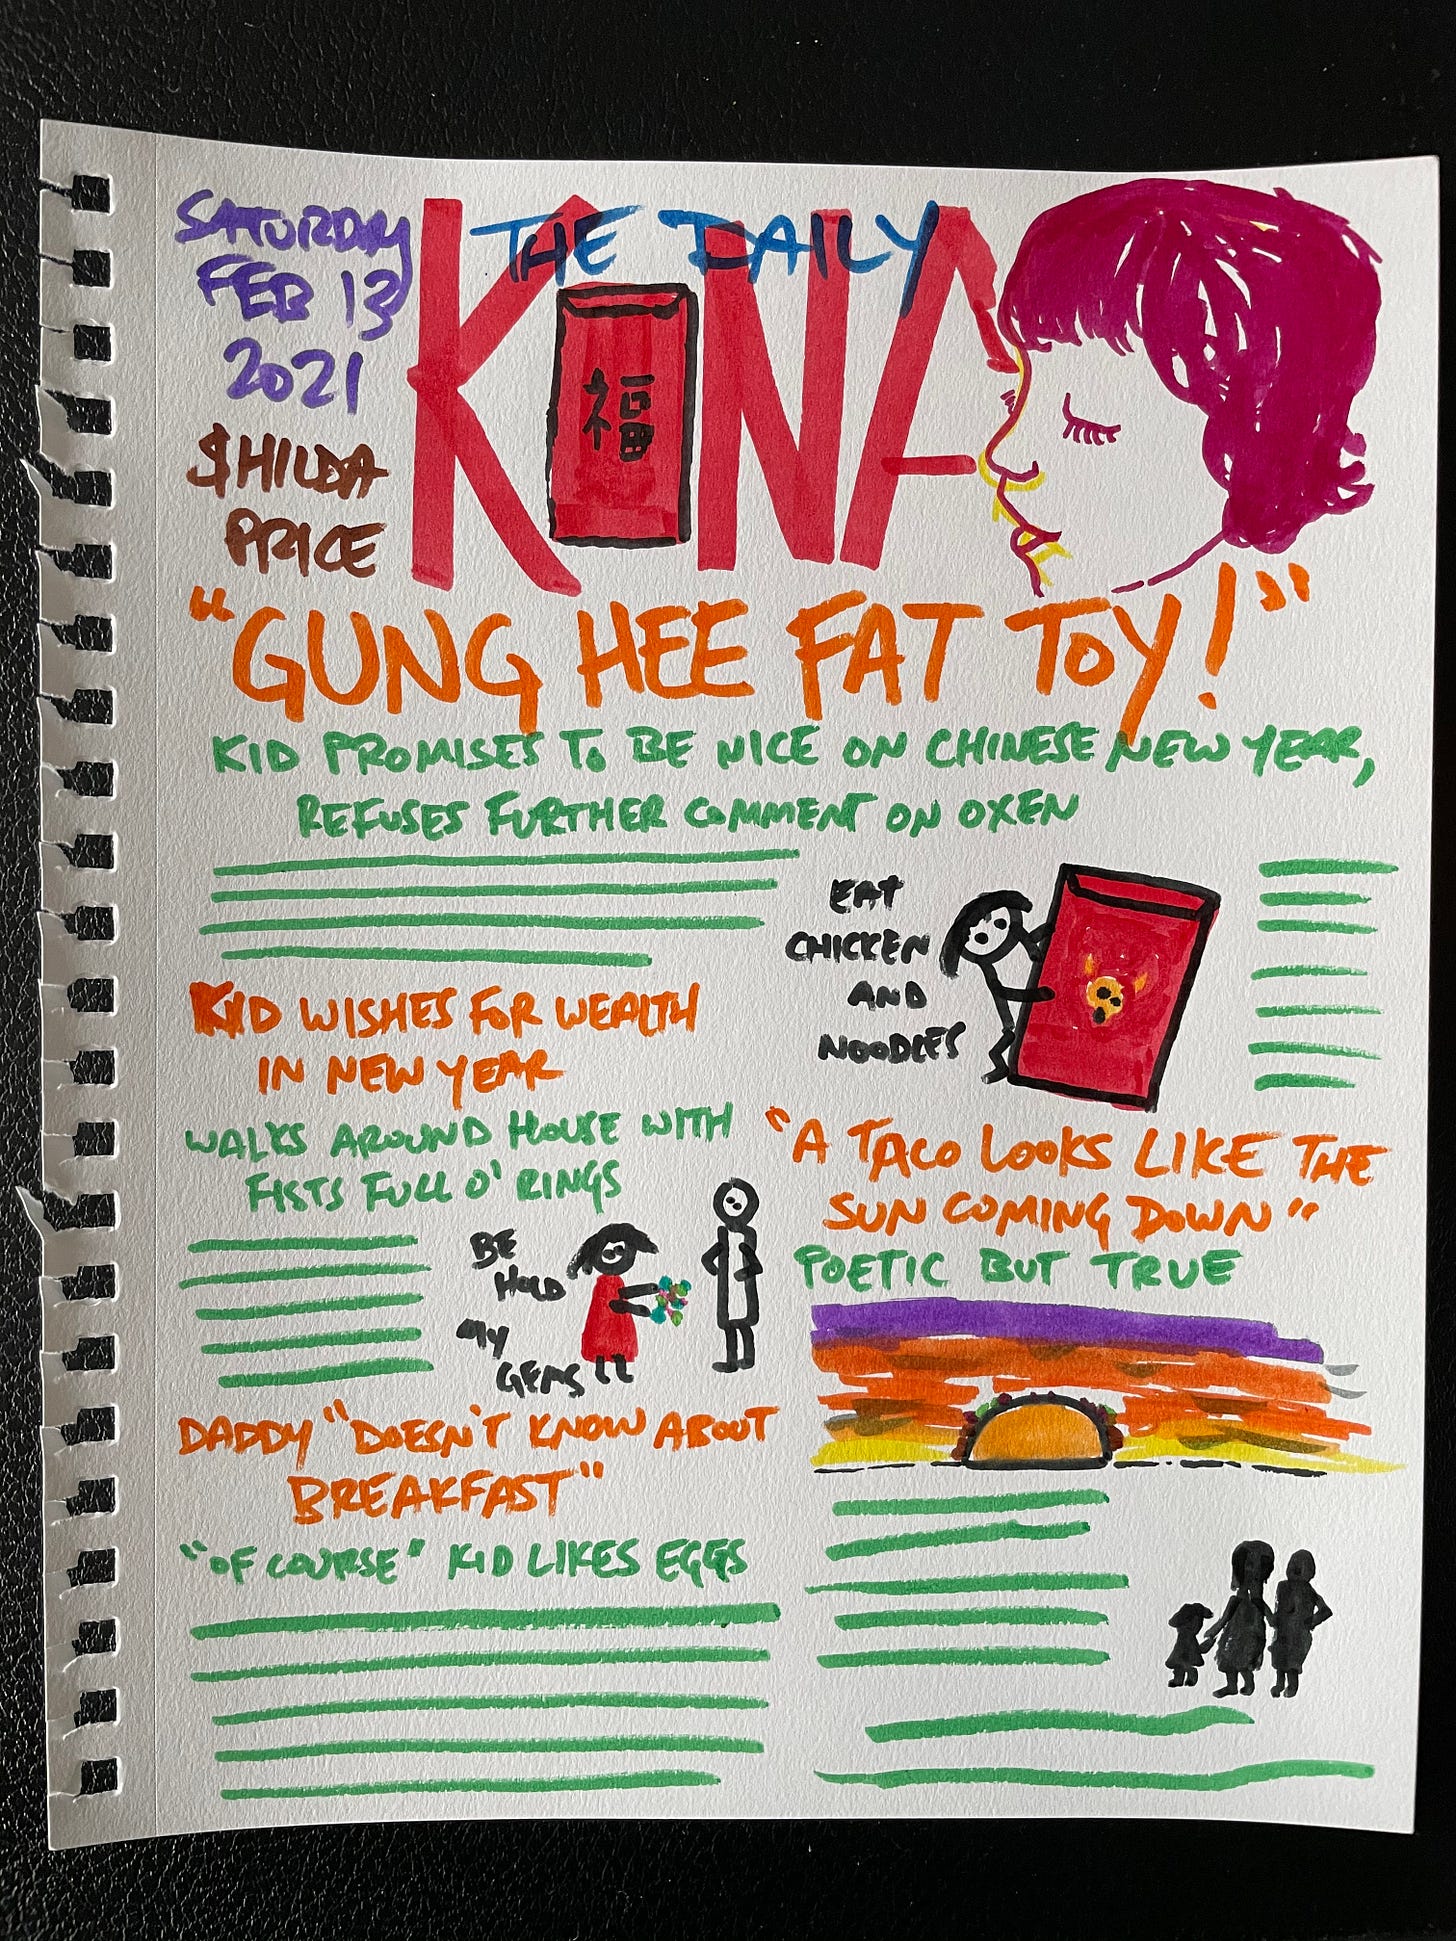 SATURDAY
FEB 13
2021
$HILDA
PRICE
THE DAILY
KONA
福
"GUNG HEE FAT TOY!"
KID PROMISES TO BE NICE ON CHINESE NEW YEAR,
REFUSES FURTHER COMMENT ON OXEN
EAT
CHICKEN
AND
NOODLES
KID WISHES FOR WEALTH
IN NEW YEAR
WALKS AROUND HOUSE WITH
FISTS FULL O' RINGS
BE
HOLD
MY
GEMS
"A TACO LOOKS LIKE THE
SUN COMING DOWN"
POETIC BUT TRUE
DADDY "DOESN'T KNOW ABOUT
BREAKFAST"
"OF COURSE" KID LIKES EGGS